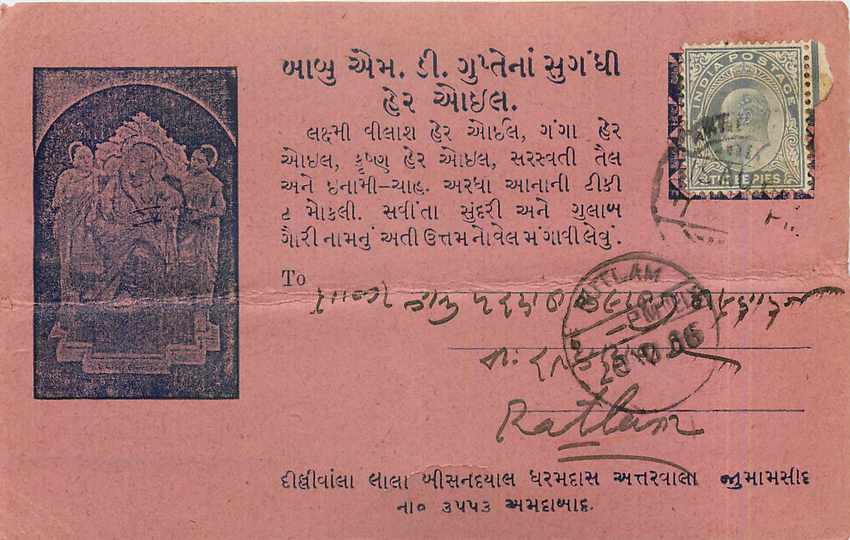 બાબુ એમ. ડી. ગુપ્તેનાં સુગંધી
હેર ઓઇલ.
લક્ષ્મી વીલાશ હેર ઓઈલ, ગંગા હેર
ઓઇલ, કૃષ્ણ હેર ઓઇલ, સરસ્વતી તૈલ
અને ઇનામી-ચાહ. અરધા આનાની ટીકી
ટ મોકલી. સવીંતા સુંદરી અને ગુલાબ
ગૈારી નામનું અતી ઉત્તમ નોવેલ મંગાવી લેવું.
INDIA POSTAGE
THREE PIES
To
RUTLAM
Ratlam
દીલ્લીવાંલા લાલા બીસનદયાલ ધરમદાસ અત્તરવાલા જુમામસીદ
ના૦ ૩૫૫૩ અમદાબાદ.